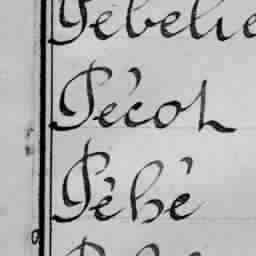 Pebelie
Pécot
Pébé